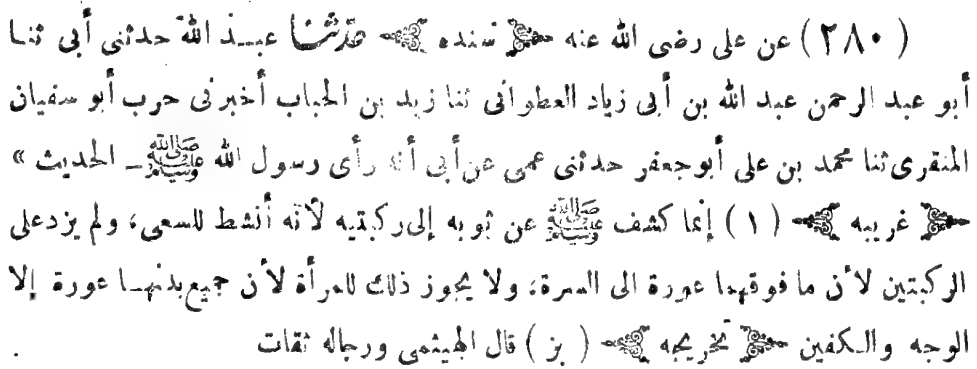 (٢٨٠) عن على رضى الله عنه ﴿ سنده ﴾ حدثنا عبد الله حدثنى أبى ثنا
أبو عبد الرحمن عبد الله بن أبى زياد القطوانى ثنا زيد بن الحباب أخبرنى حرب أبو سفيان
المنقرى ثنا محمد بن على أبو جعفر حدثنى عمى عن أبى أنه رأى رسول الله ﷺ ـ الحديث »
﴿ غريبه ﴾ (١) إنما كشف ﷺ عن ثوبه إلى ركبتيه لأنه أنشط للسعى، ولم يزد على
الركبتين لأن ما فوقهما عورة الى السرة، ولا يجوز ذلك للمرأة لأن جميع بدنها عورة إلا
الوجه والكفين ﴿ تخريجه ﴾ ( بز ) قال الهيثمى ورجاله ثقات .